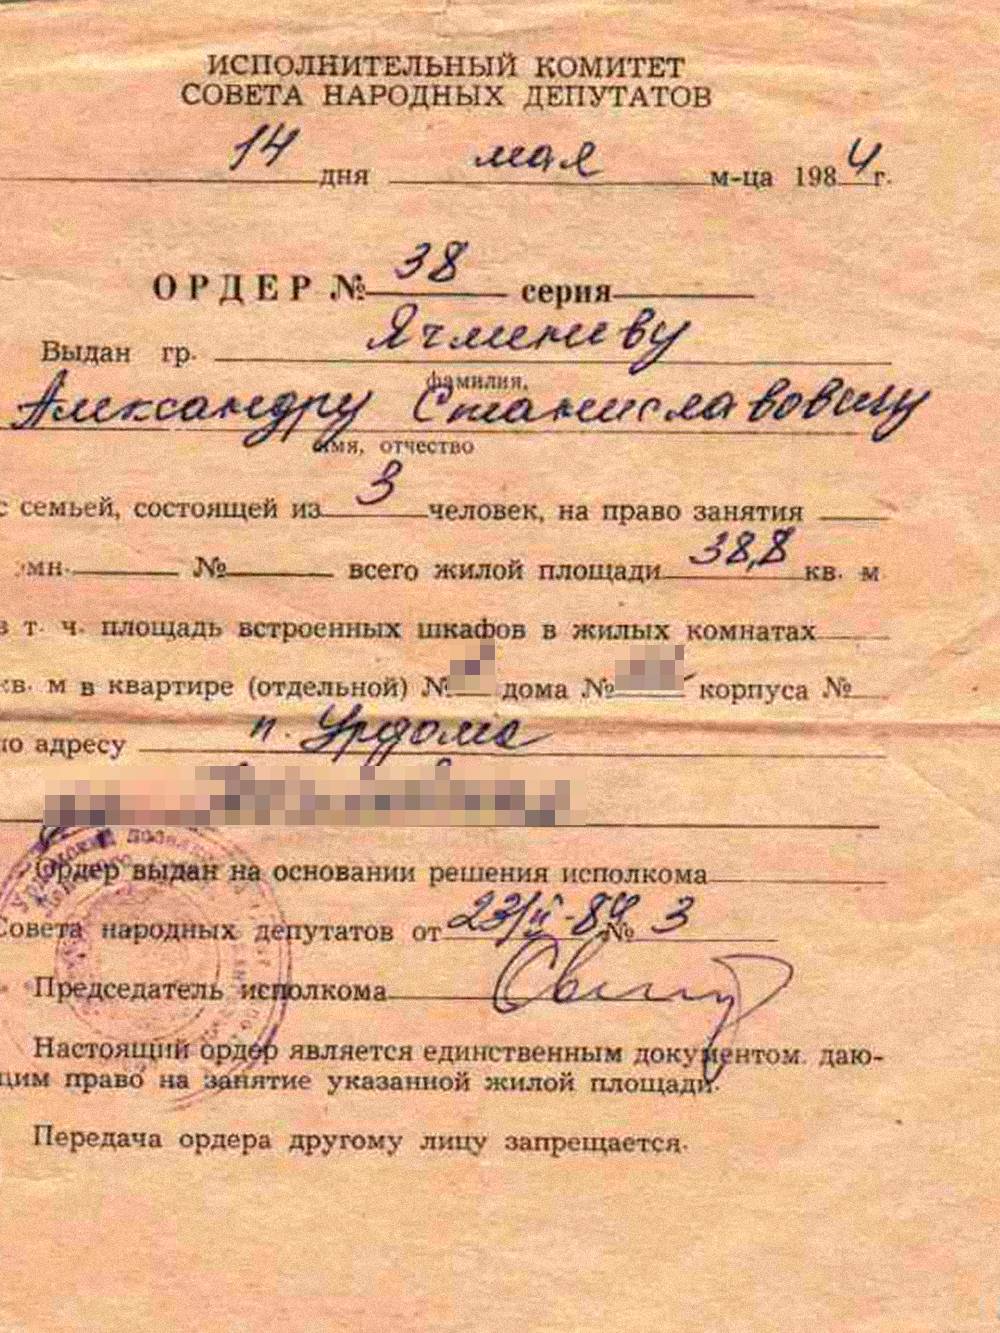 ИСПОЛНИТЕЛЬНЫЙ КОМИТЕТ
СОВЕТА НАРОДНЫХ ДЕПУТАТОВ
14 дня мая м-ца 1984 г.
ОРДЕР № 38 серия
Выдан гр. Ячмениву
фамилия,
Александру Станиславовичу
имя, отчество
с семьей, состоящей из 3 человек, на право занятия
омн. № всего жилой площади 38,8 кв. м
в т. ч. площадь встроенных шкафов в жилых комнатах
кв. м в квартире (отдельной) № дома № корпуса №
по адресу п. Урдома
Ордер выдан на основании решения исполкома
Совета народных депутатов от 23/ -84 № 3
Председатель исполкома
Настоящий ордер является единственным документом, даю-
щим право на занятие указанной жилой площади.
Передача ордера другому лицу запрещается.